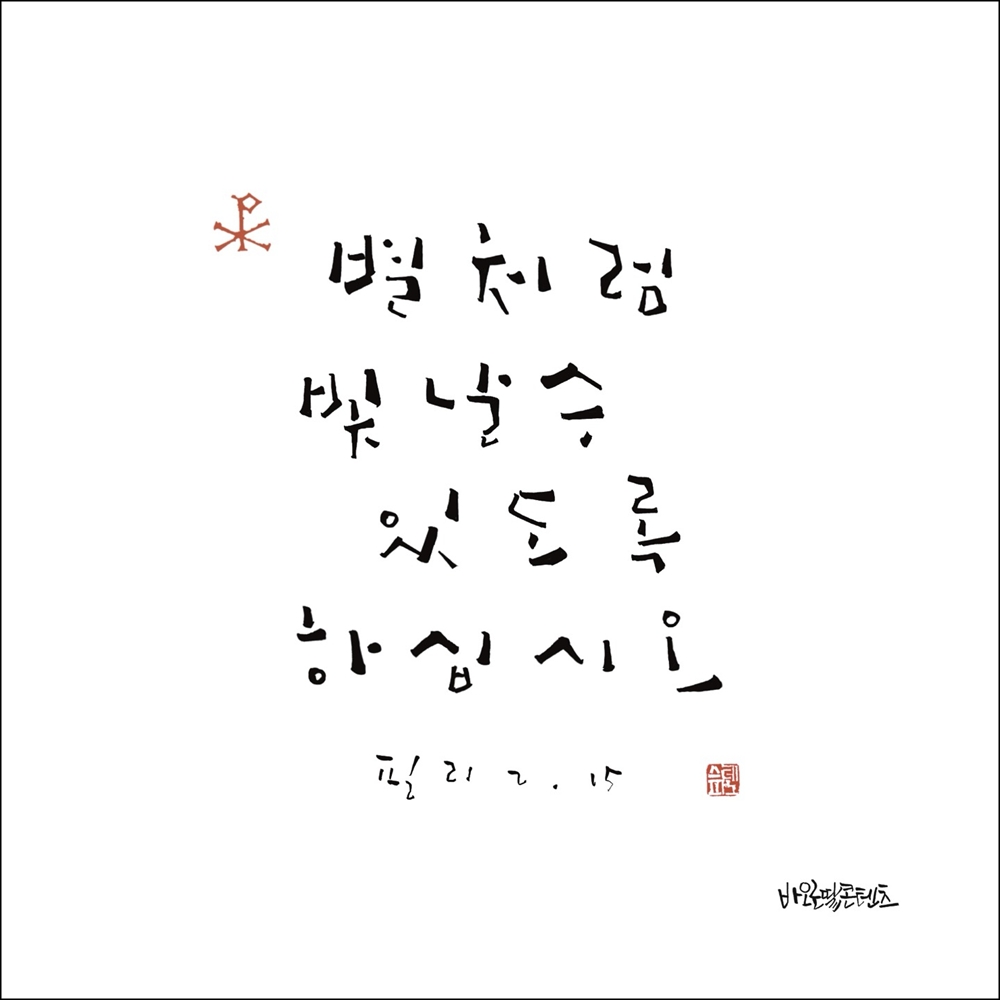 별처럼
빛날 수
있도록
하십시오
필리 2. 15
바오로딸콘텐츠